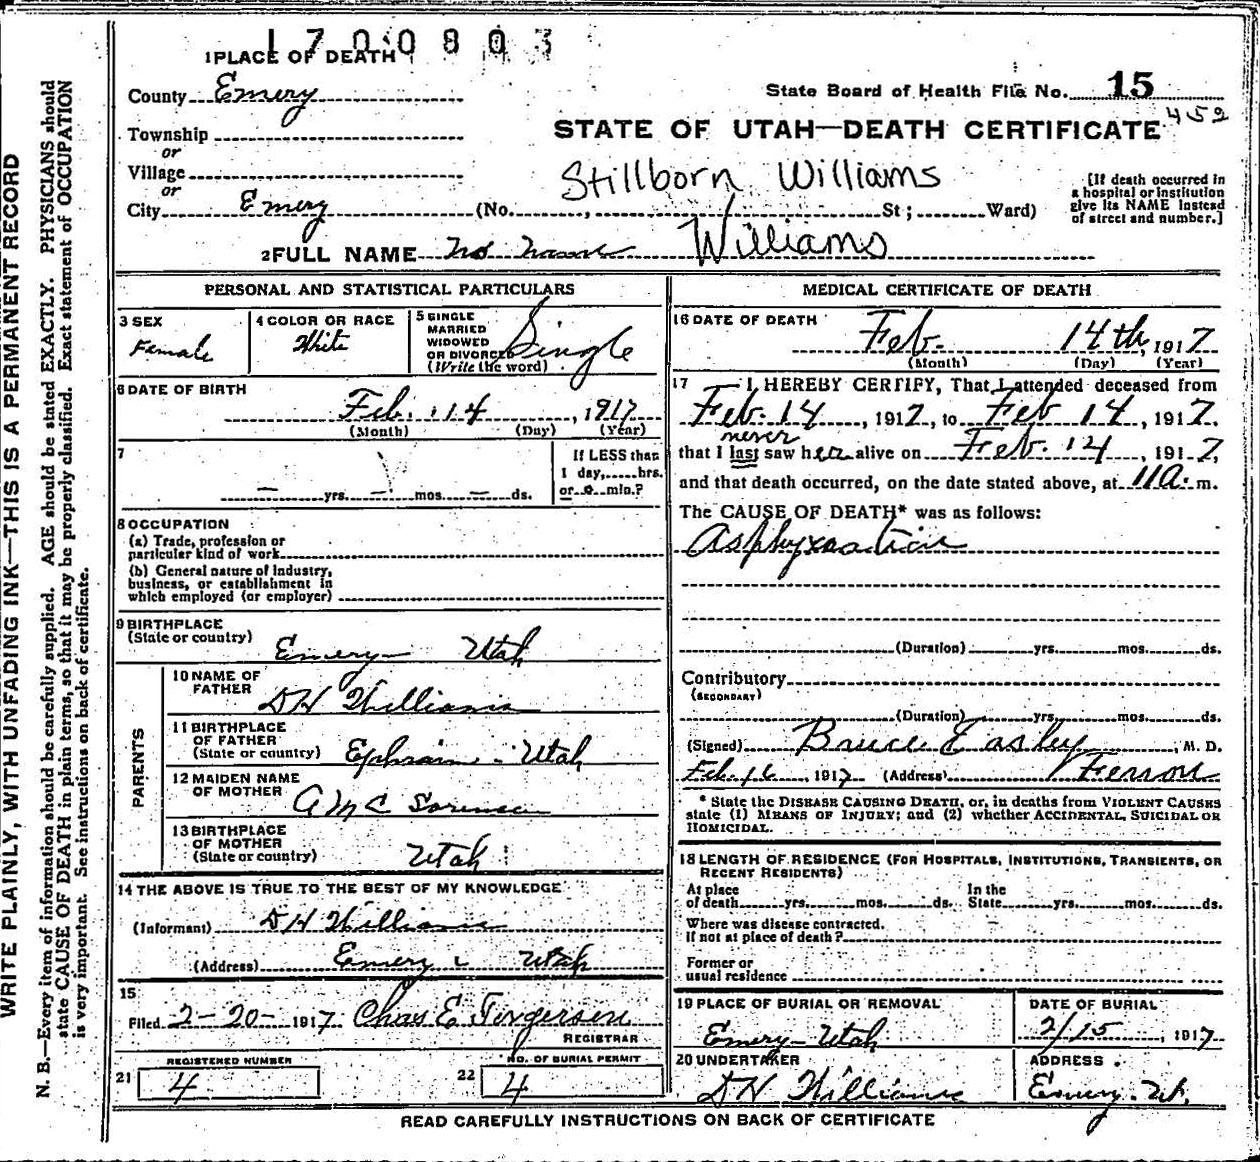 1700803
1 PLACE OF DEATH
County Emery
State Board of Health File No. 15
452
Township
or
Village
or
City Emery (No. , St; Ward)
STATE OF UTAH—DEATH CERTIFICATE
Stillborn Williams
[If death occurred in
a hospital or institution
give its NAME instead
of street and number.]
2 FULL NAME No Name Williams
PERSONAL AND STATISTICAL PARTICULARS
3 SEX
Female
4 COLOR OR RACE
White
5 SINGLE
MARRIED
WIDOWED
OR DIVORCED
(Write the word)
Single
6 DATE OF BIRTH
Feb. 14, 1917
(Month) (Day) (Year)
7
— yrs. — mos. — ds.
If LESS than
1 day, hrs.
or 0 min.?
8 OCCUPATION
(a) Trade, profession or
particular kind of work
(b) General nature of industry,
business, or establishment in
which employed (or employer)
9 BIRTHPLACE
(State or country)
Emery Utah
PARENTS
10 NAME OF
FATHER
DH Williams
11 BIRTHPLACE
OF FATHER
(State or country)
Ephraim - Utah
12 MAIDEN NAME
OF MOTHER
AMC Sorensen
13 BIRTHPLACE
OF MOTHER
(State or country)
Utah
14 THE ABOVE IS TRUE TO THE BEST OF MY KNOWLEDGE
(Informant) DH Williams
(Address) Emery Utah
15
Filed 2-20- 1917 Chas E Torgersen
REGISTRAR
REGISTERED NUMBER
21 4
NO. OF BURIAL PERMIT
22 4
MEDICAL CERTIFICATE OF DEATH
16 DATE OF DEATH
Feb. 14th, 1917
(Month) (Day) (Year)
17 I HEREBY CERTIFY, That I attended deceased from
Feb. 14, 1917, to Feb 14, 1917,
never
that I last saw her alive on Feb. 14, 1917,
and that death occurred, on the date stated above, at 11a. m.
The CAUSE OF DEATH* was as follows:
Asphyxiation
(Duration) yrs. mos. ds.
Contributory
(SECONDARY)
(Duration) yrs. mos. ds.
(Signed) Bruce Easley, M. D.
Feb. 16, 1917 (Address) Ferron
* State the DISEASE CAUSING DEATH, or, in deaths from VIOLENT CAUSES
state (1) MEANS OF INJURY; and (2) whether ACCIDENTAL, SUICIDAL OR
HOMICIDAL.
18 LENGTH OF RESIDENCE (FOR HOSPITALS, INSTITUTIONS, TRANSIENTS, OR
RECENT RESIDENTS)
At place
of death yrs. mos. ds.
In the
State yrs. mos. ds.
Where was disease contracted.
if not at place of death?
Former or
usual residence
19 PLACE OF BURIAL OR REMOVAL
Emery Utah
DATE OF BURIAL
2/15, 1917
20 UNDERTAKER
DH Williams
ADDRESS
Emery. Ut.
READ CAREFULLY INSTRUCTIONS ON BACK OF CERTIFICATE
WRITE PLAINLY, WITH UNFADING INK—THIS IS A PERMANENT RECORD
N. B.—Every item of information should be carefully supplied. AGE should be stated EXACTLY. PHYSICIANS should
state CAUSE OF DEATH in plain terms, so that it may be properly classified. Exact statement of OCCUPATION
is very important. See instructions on back of certificate.